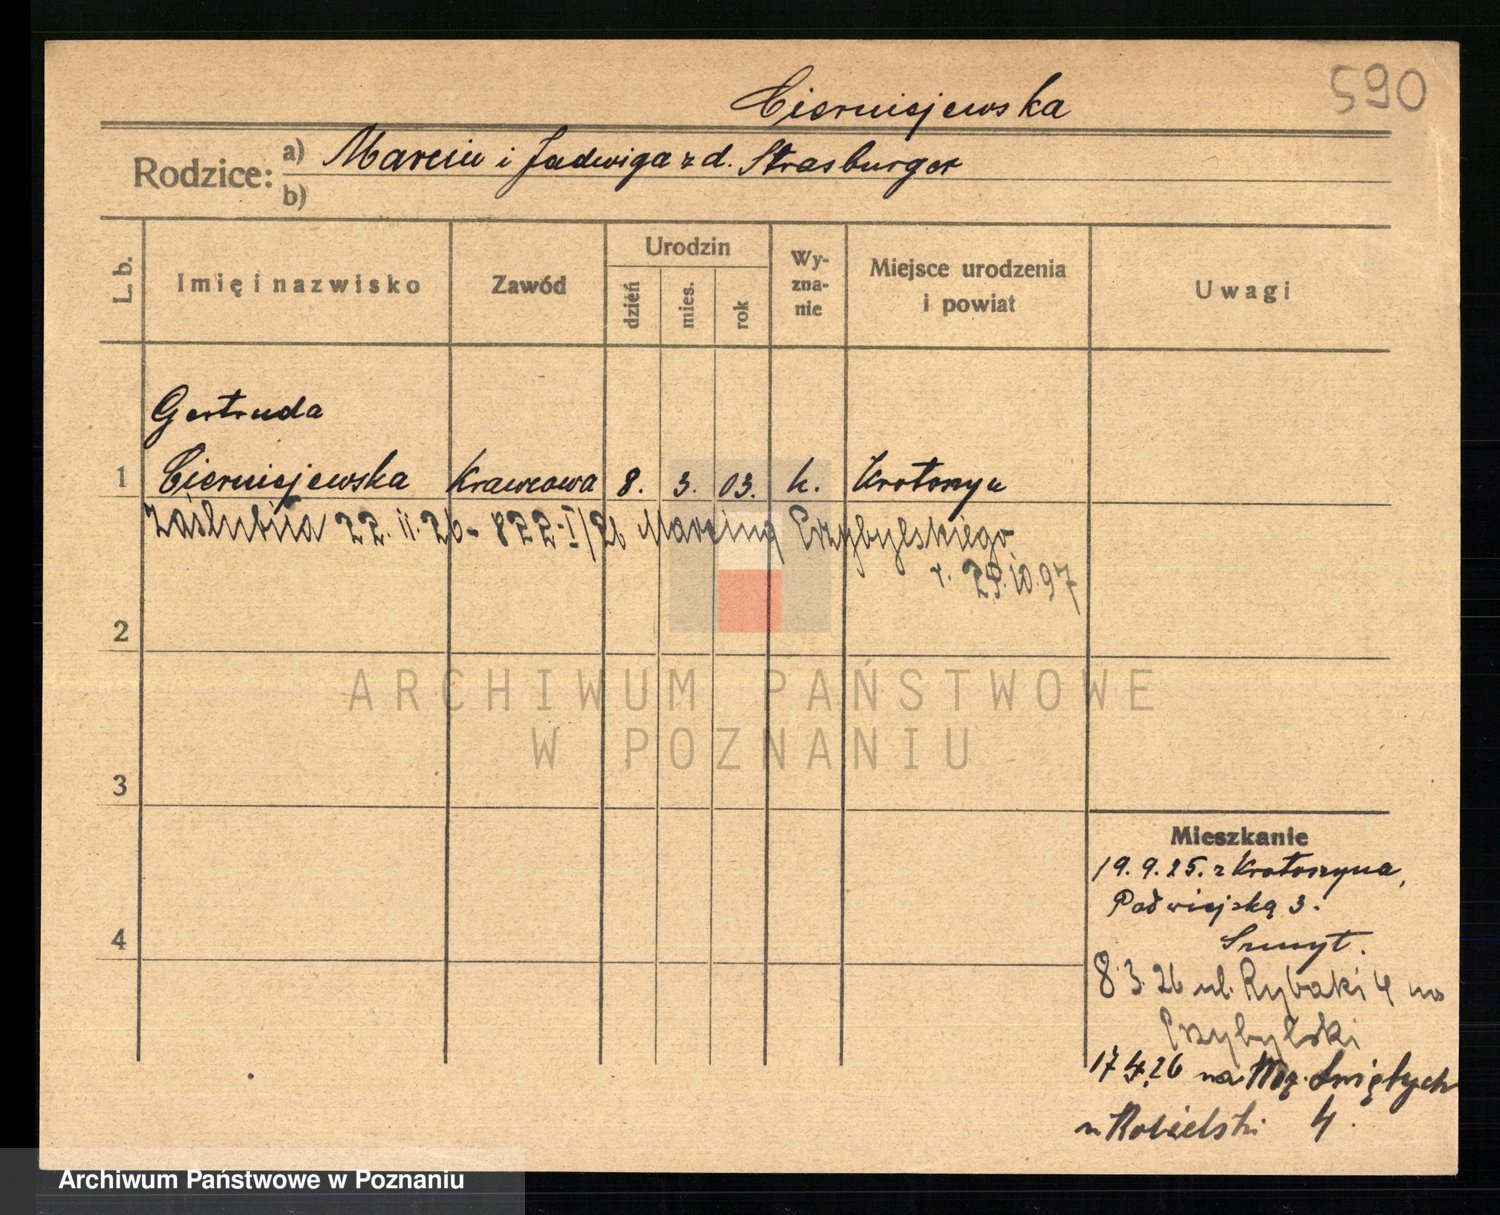 590
Cierniejewska
Rodzice: a) Marcin i Jadwiga z d. Strasburger
b)
L. b.
Imię i nazwisko
Zawód
Urodzin
dzień
mies.
rok
Wy-
zna-
nie
Miejsce urodzenia
i powiat
Uwagi
Gertruda
1 Cierniejewska Krawcowa 8. 3. 03. k. Krotoszyn
zaślubiła 22. II. 26 - 822-I/26 Marcina Przybylskiego
r. 29.10.97
2
3
4
Mieszkanie
19.9.25. z Krotoszyna,
Podwiejską 3.
Szmyt.
8.3.26 ul. Rybaki 4
Przybylski
17.4.26 na Świętych
4.
ARCHIWUM PAŃSTWOWE
W POZNANIU
Archiwum Państwowe w Poznaniu